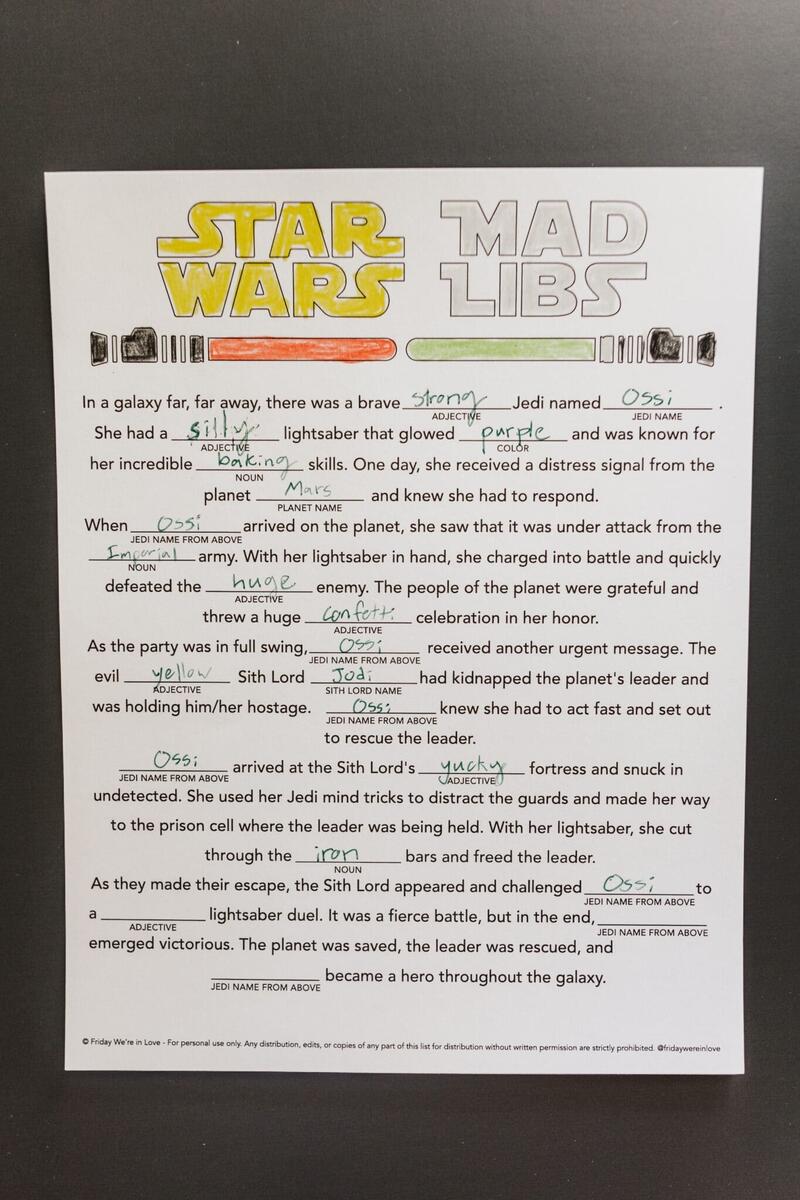 STAR WARS
MAD LIBS
In a galaxy far, far away, there was a brave strong Jedi named Ossi .
ADJECTIVE JEDI NAME
She had a silly lightsaber that glowed purple and was known for
ADJECTIVE COLOR
her incredible baking skills. One day, she received a distress signal from the
NOUN
planet Mars and knew she had to respond.
PLANET NAME
When Ossi arrived on the planet, she saw that it was under attack from the
JEDI NAME FROM ABOVE
Imperial army. With her lightsaber in hand, she charged into battle and quickly
NOUN
defeated the huge enemy. The people of the planet were grateful and
ADJECTIVE
threw a huge confetti celebration in her honor.
ADJECTIVE
As the party was in full swing, Ossi received another urgent message. The
JEDI NAME FROM ABOVE
evil yellow Sith Lord Jodi had kidnapped the planet's leader and
ADJECTIVE SITH LORD NAME
was holding him/her hostage. Ossi knew she had to act fast and set out
JEDI NAME FROM ABOVE
to rescue the leader.
Ossi arrived at the Sith Lord's yucky fortress and snuck in
JEDI NAME FROM ABOVE ADJECTIVE
undetected. She used her Jedi mind tricks to distract the guards and made her way
to the prison cell where the leader was being held. With her lightsaber, she cut
through the iron bars and freed the leader.
NOUN
As they made their escape, the Sith Lord appeared and challenged Ossi to
JEDI NAME FROM ABOVE
a ___ lightsaber duel. It was a fierce battle, but in the end, ___
ADJECTIVE JEDI NAME FROM ABOVE
emerged victorious. The planet was saved, the leader was rescued, and
___ became a hero throughout the galaxy.
JEDI NAME FROM ABOVE
© Friday We're in Love - For personal use only. Any distribution, edits, or copies of any part of this list for distribution without written permission are strictly prohibited. @fridaywereinlove